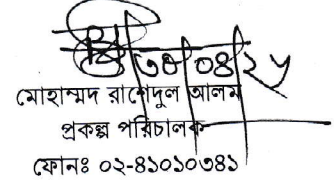 ৩০/০৪/২৫
মোহাম্মদ রাশেদুল আলম
প্রকল্প পরিচালক
ফোনঃ ০২-৪১০১০৩৪১